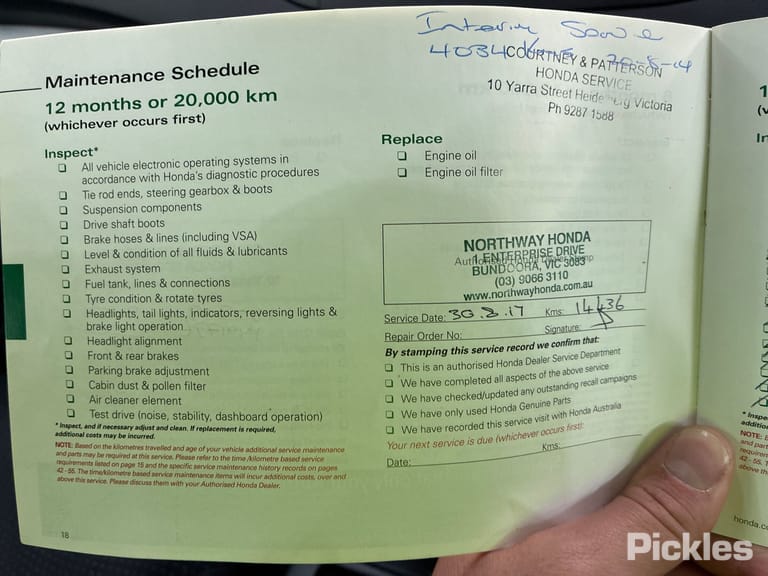 Interim
40341
20-8-14
COURTNEY & PATTERSON
HONDA SERVICE
10 Yarra Street Victoria
Ph 9287 1588
Maintenance Schedule
12 months or 20,000 km
(whichever occurs first)
Inspect*
All vehicle electronic operating systems in
accordance with Honda's diagnostic procedures
Tie rod ends, steering gearbox & boots
Suspension components
Drive shaft boots
Brake hoses & lines (including VSA)
Level & condition of all fluids & lubricants
Exhaust system
Fuel tank, lines & connections
Tyre condition & rotate tyres
Headlights, tail lights, indicators, reversing lights &
brake light operation
Headlight alignment
Front & rear brakes
Parking brake adjustment
Cabin dust & pollen filter
Air cleaner element
Test drive (noise, stability, dashboard operation)
* Inspect, and if necessary adjust and clean. If replacement is required,
additional costs may be incurred.
NOTE: Based on the kilometres travelled and age of your vehicle additional service maintenance
and parts may be required at this service. Please refer to the time /kilometre based service
requirements listed on page 15 and the specific service maintenance history records on pages
42 - 55. The time/kilometre based service maintenance items will incur additional costs, over and
above this service. Please discuss them with your Authorised Honda Dealer.
18
Replace
Engine oil
Engine oil filter
NORTHWAY HONDA
1 ENTERPRISE DRIVE
BUNDOORA, VIC 3083
(03) 9066 3110
www.northwayhonda.com.au
Service Date: 30.8.17 Kms: 14436
Repair Order No: Signature:
By stamping this service record we confirm that:
This is an authorised Honda Dealer Service Department
We have completed all aspects of the above service
We have checked/updated any outstanding recall campaigns
We have only used Honda Genuine Parts
We have recorded this service visit with Honda Australia
Your next service is due (whichever occurs first):
Date: Kms:
* Inspe
additio
NOTE: B
and part
requirem
42 - 55. T
above th
honda.c
Pickles